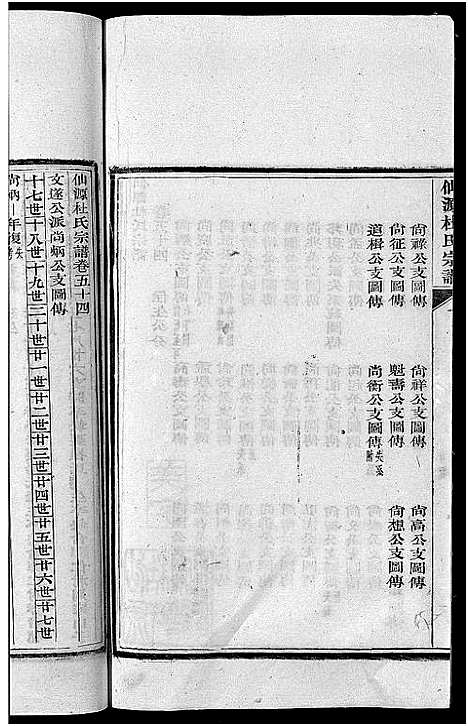 仙源杜氏宗譜
尙祿公支圖傳
尙祥公支圖傳
尙高公支圖傳
尙征公支圖傳
魁壽公支圖傳
尙想公支圖傳
道楫公支圖傳
尙衡公支圖傳
仙源杜氏宗譜卷五十四
文遂公派尙炳公支圖傳
十七世十八世十九世二十世廿一世廿二世廿三世廿四世廿五世廿六世廿七世